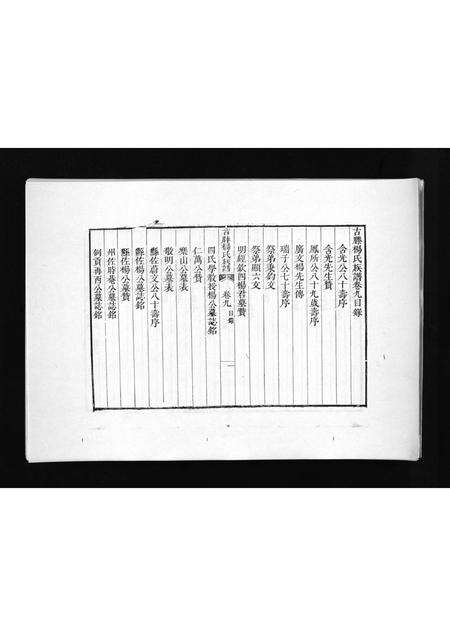 古滕楊氏族譜卷九目錄
含光公八十壽序
含光先生贊
鳳所公八十九歲壽序
廣文楊先生傳
瑞子公七十壽序
祭弟秉鈞文
祭弟顯六文
明經欽四楊君墓贊
古滕楊氏族譜 卷九 目錄 一
四氏學教授楊公墓誌銘
仁萬公贊
樂山公墓表
敬明公墓表
縣佐蔚文公八十壽序
縣佐楊公墓誌銘
縣佐楊公墓贊
州佐時菴公墓誌銘
例貢海西公墓誌銘